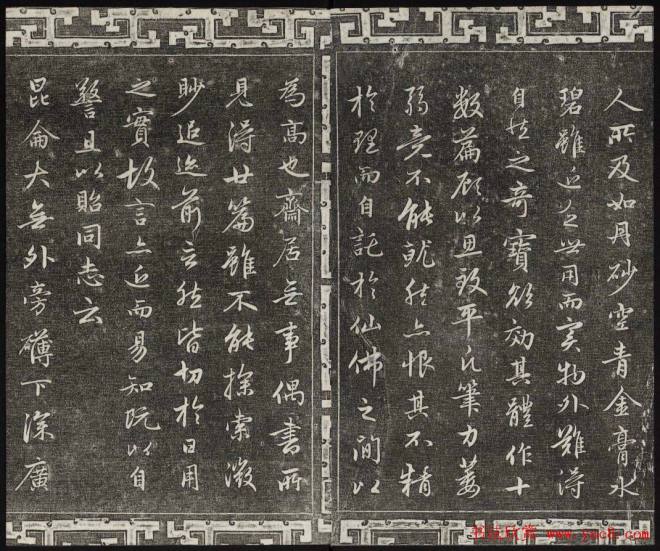 人所及如丹砂空青金膏水
碧雖近乏世用而实物外難得
自然之奇寶欲効其體作十
数篇顧以思致平凡筆力萎
弱竟不能就然亦恨其不精
於理而自託於仙佛之间以
為高也齋居无事偶書所
見得廿篇雖不能探索微
眇追迹前言然皆切於日用
之實故言亦近而易知既以自
警且以貽同志云
昆侖大無外旁礴下深廣
书法欣赏 www.yac8.com